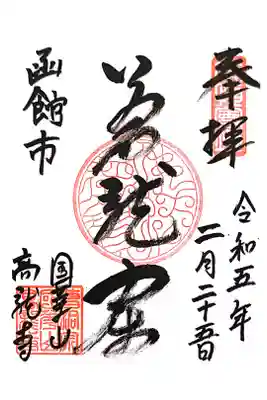 奉拝
令和五年
二月二十五日
龍
函館市
国華山
高龍寺